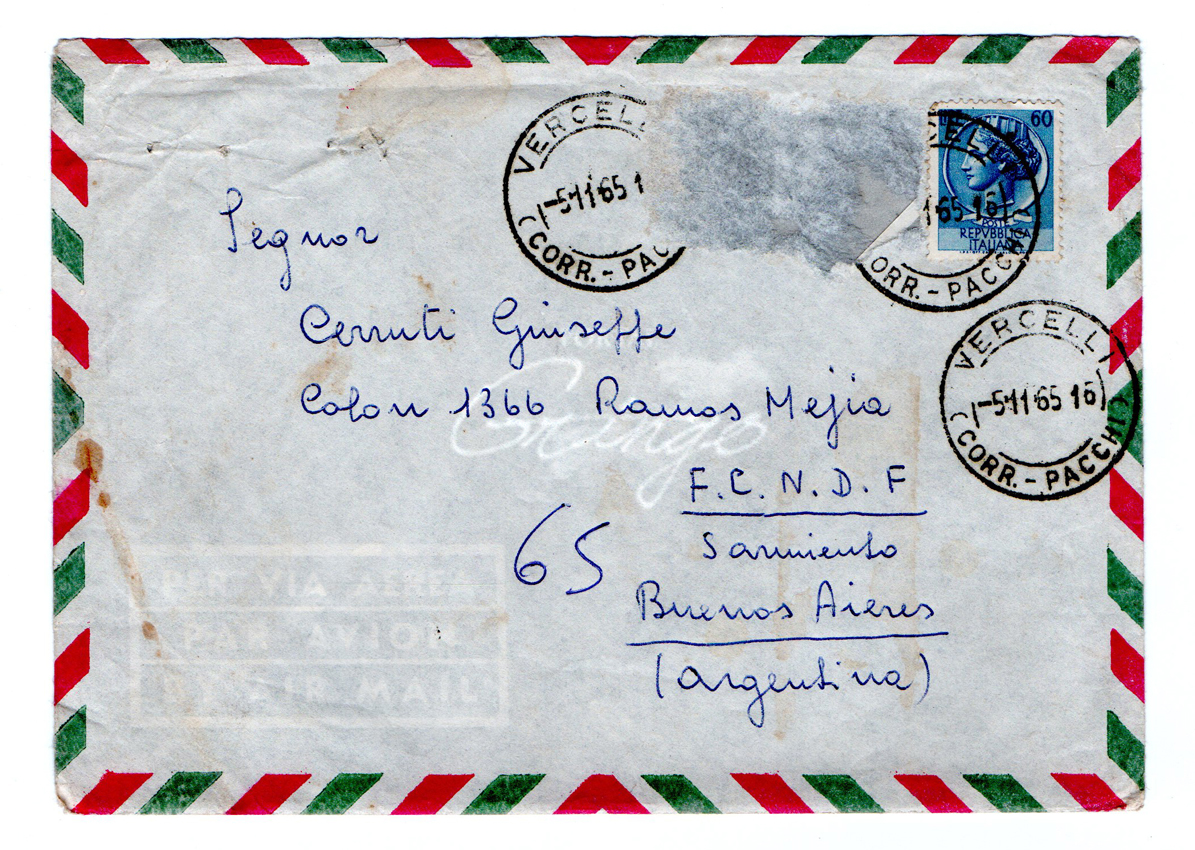 VERCELL
-5·11·65 1
CORR.-PAC
60
ELL
1·65 16
ORR.-PACCH
POSTE
REPVBBLICA
ITALIANA
VERCELLI
-5·11·65 16
CORR.-PACCHI
Segnor
Cerruti Giuseffe
Colon 1366 Ramos Mejia
Grango
F.C.N.D.F
65
Sarmiento
Buenos Aieres
(Argentina)
PER VIA AEREA
PAR AVION
BY AIR MAIL